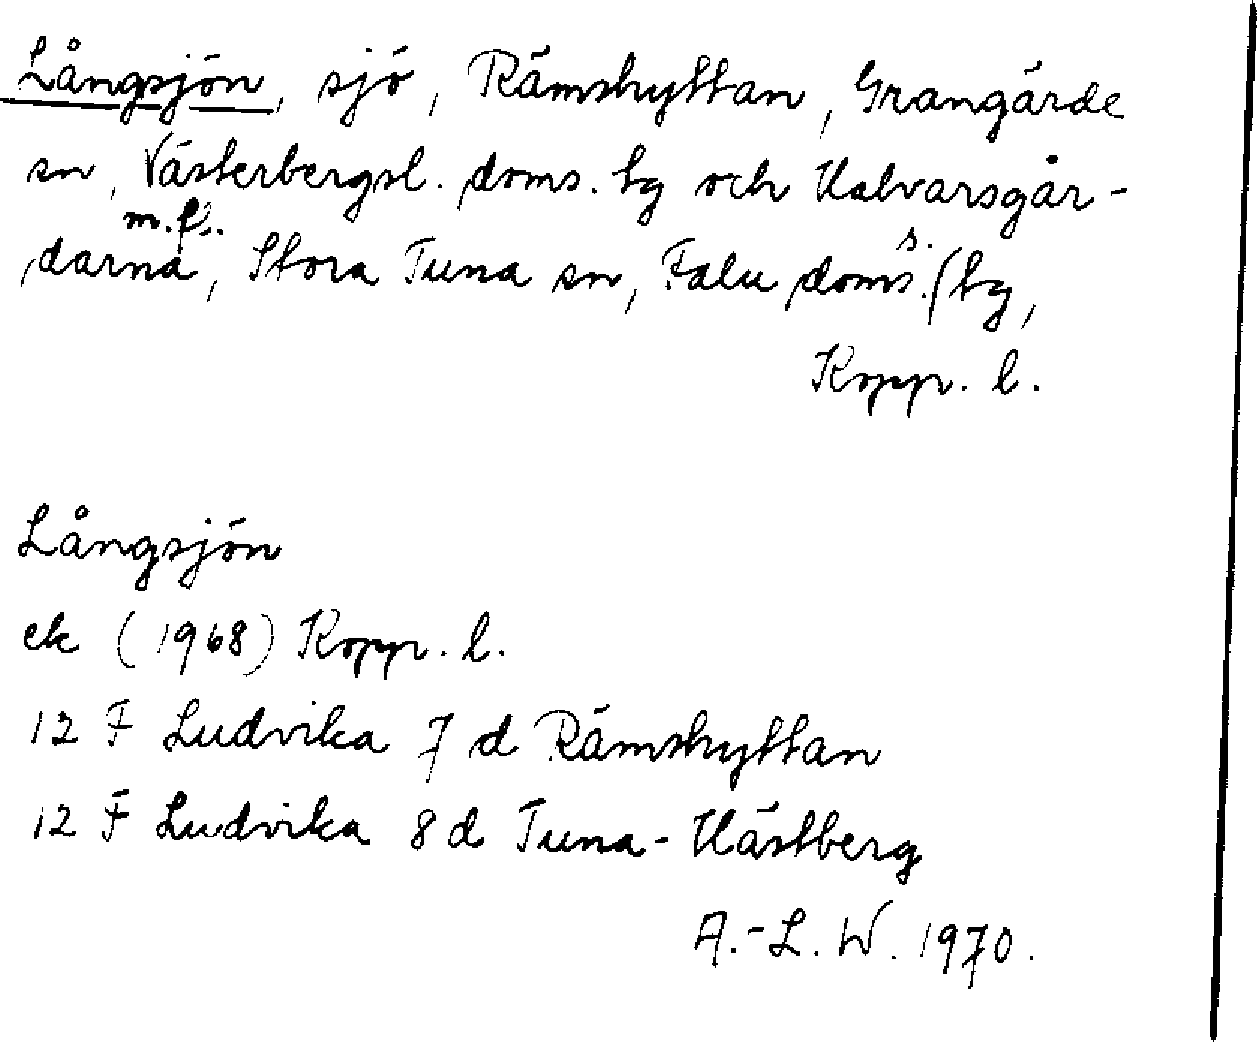 Långsjön, sjö, Rämshyttan, Grangärde
sn, Västerbergsl. doms. tg och Halvarsgår-
darna m.fl., Stora Tuna sn, Falu doms.s. tg,
Kopp. l.
Långsjön
ek (1968) Kopp. l.
12 F Ludvika 7 d Rämshyttan
12 F Ludvika 8 d Tuna-Hästberg
A.-L. W. 1970.